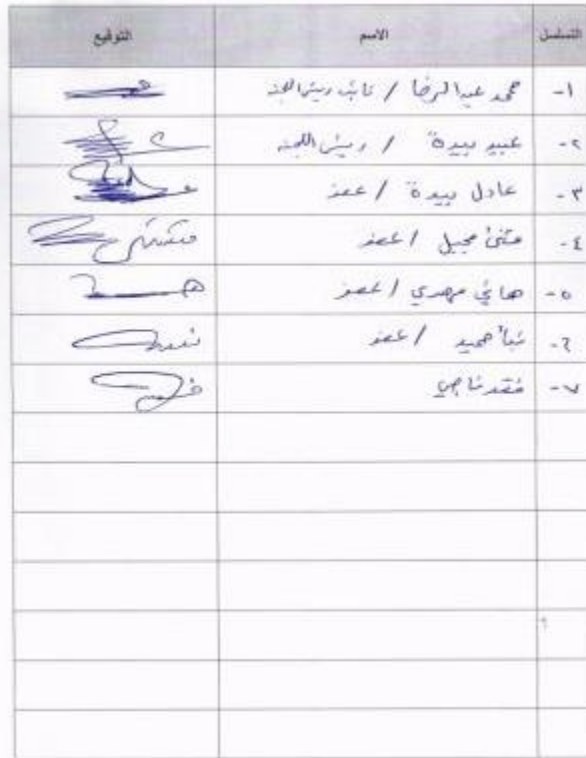 التسلسل الاسم التوقيع
١- محمد عبدالرضا / نائب رئيس اللجنه
٢- عبيد بيدة / رئيس اللجنه
٣- عادل بيدة / عضو
٤- مثنى مجبل / عضو
٥- هاني مهدي / عضو
٦- نبأ حميد / عضو
٧- ناجي